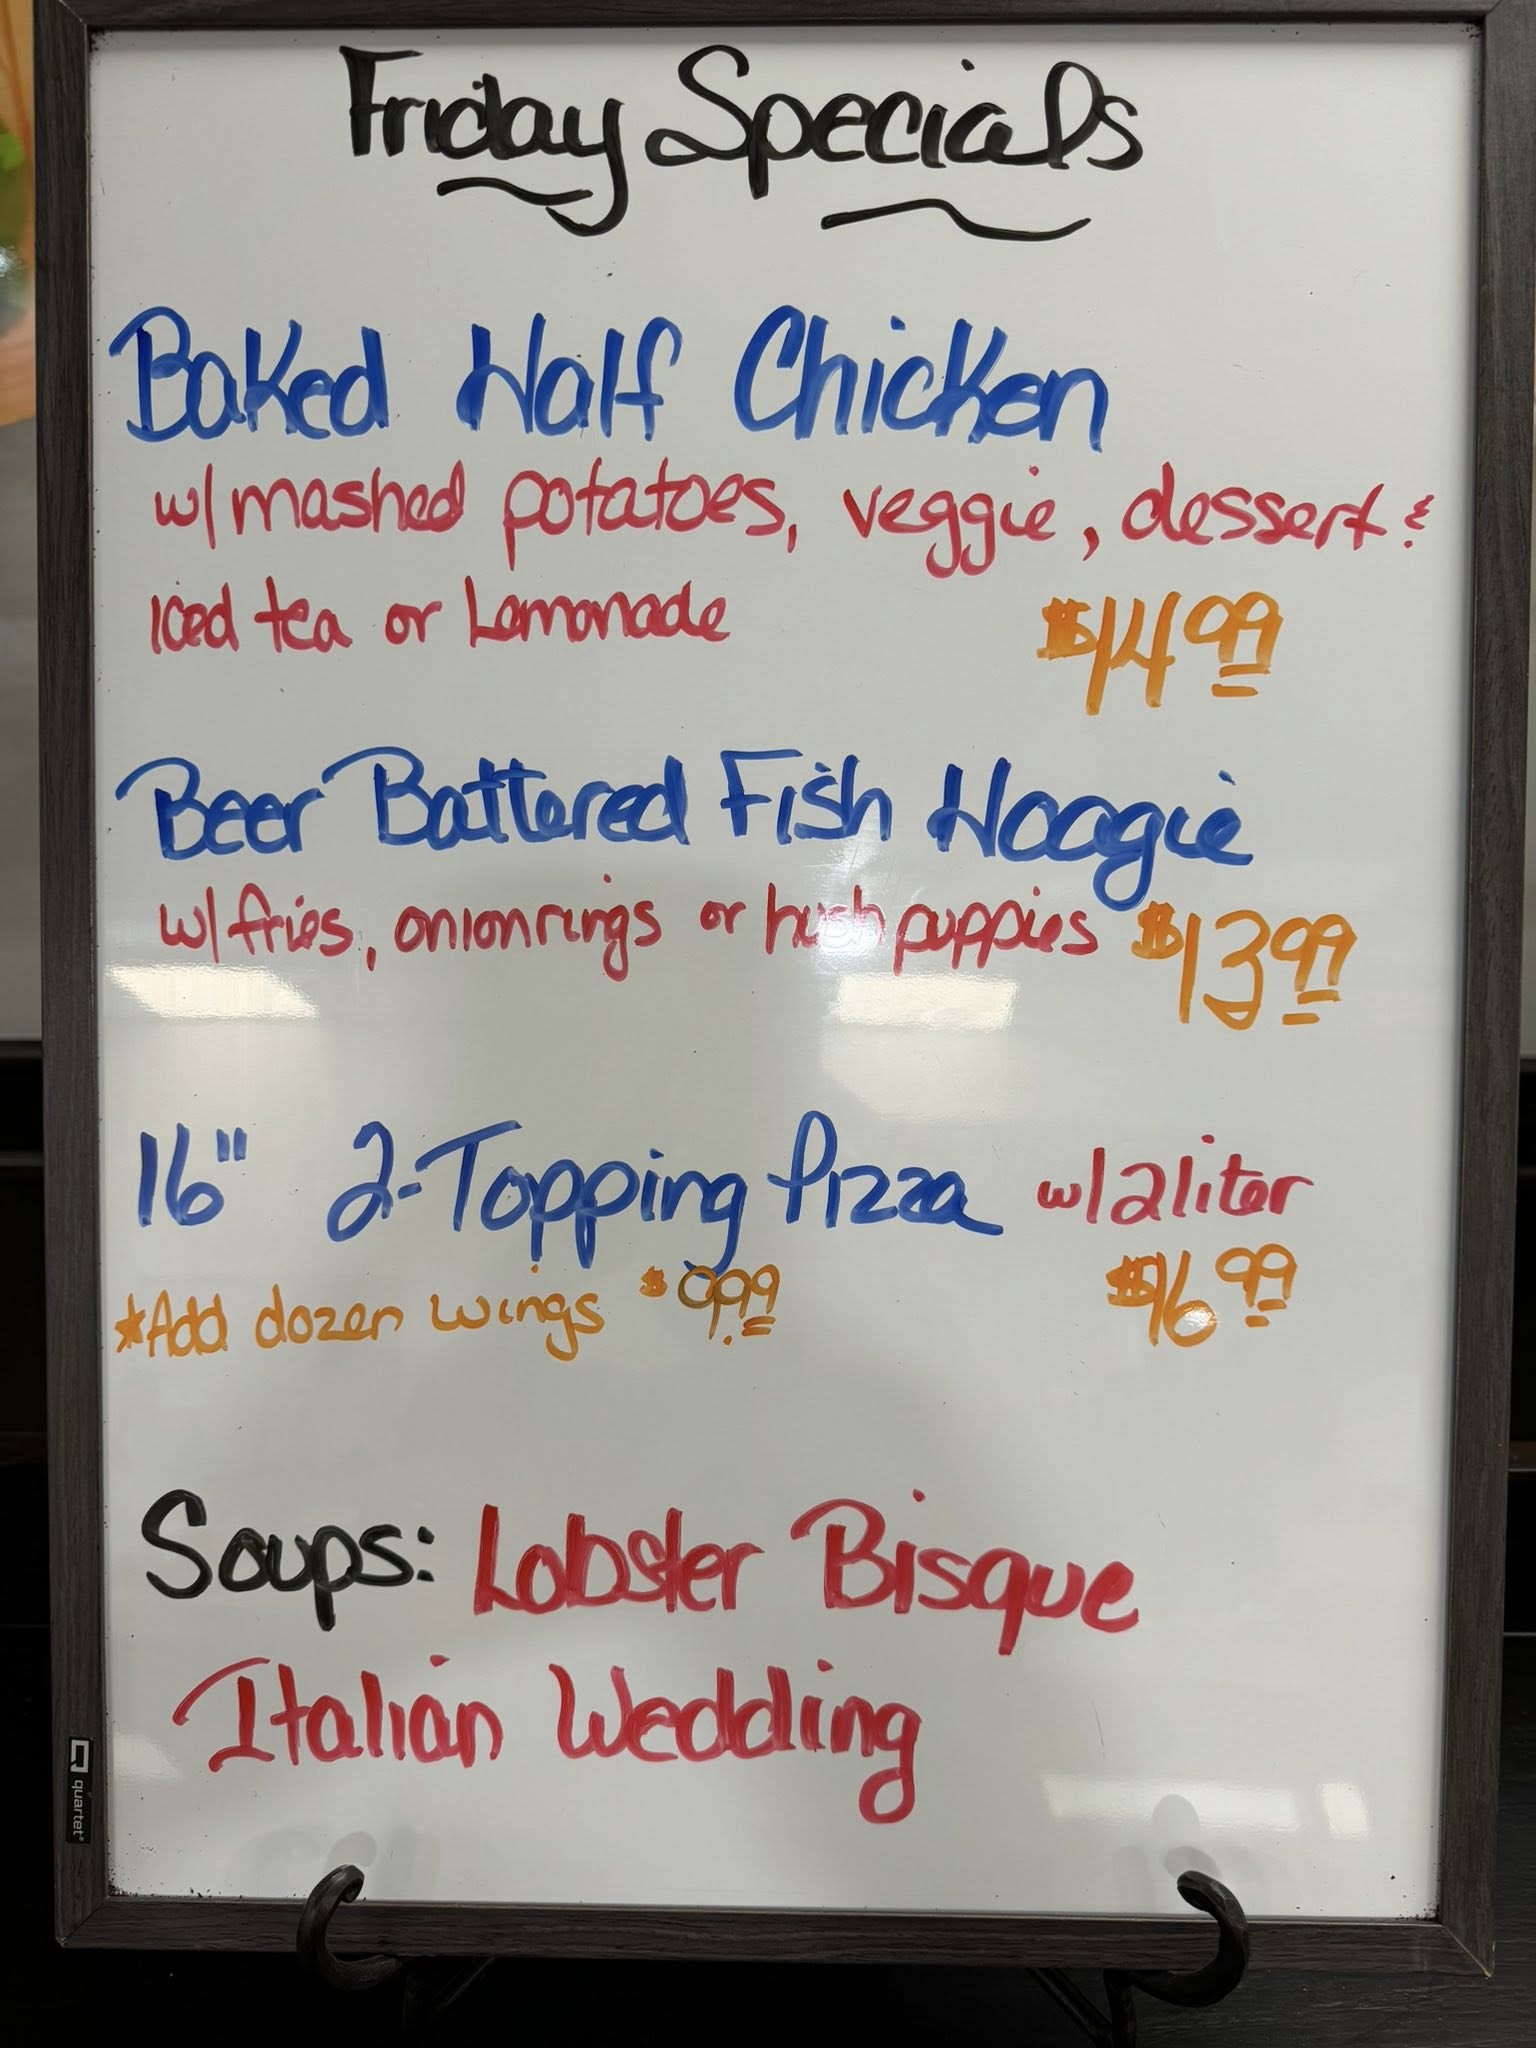 Friday Specials
Baked Half Chicken
w/ mashed potatoes, veggie, dessert &
Iced tea or Lemonade $14.99
Beer Battered Fish Hoagie
w/ fries, onion rings or hush puppies $13.99
16" 2-Topping Pizza w/ 2 liter
*Add dozen wings $9.99 $16.99
Soups: Lobster Bisque
Italian Wedding
quartet®